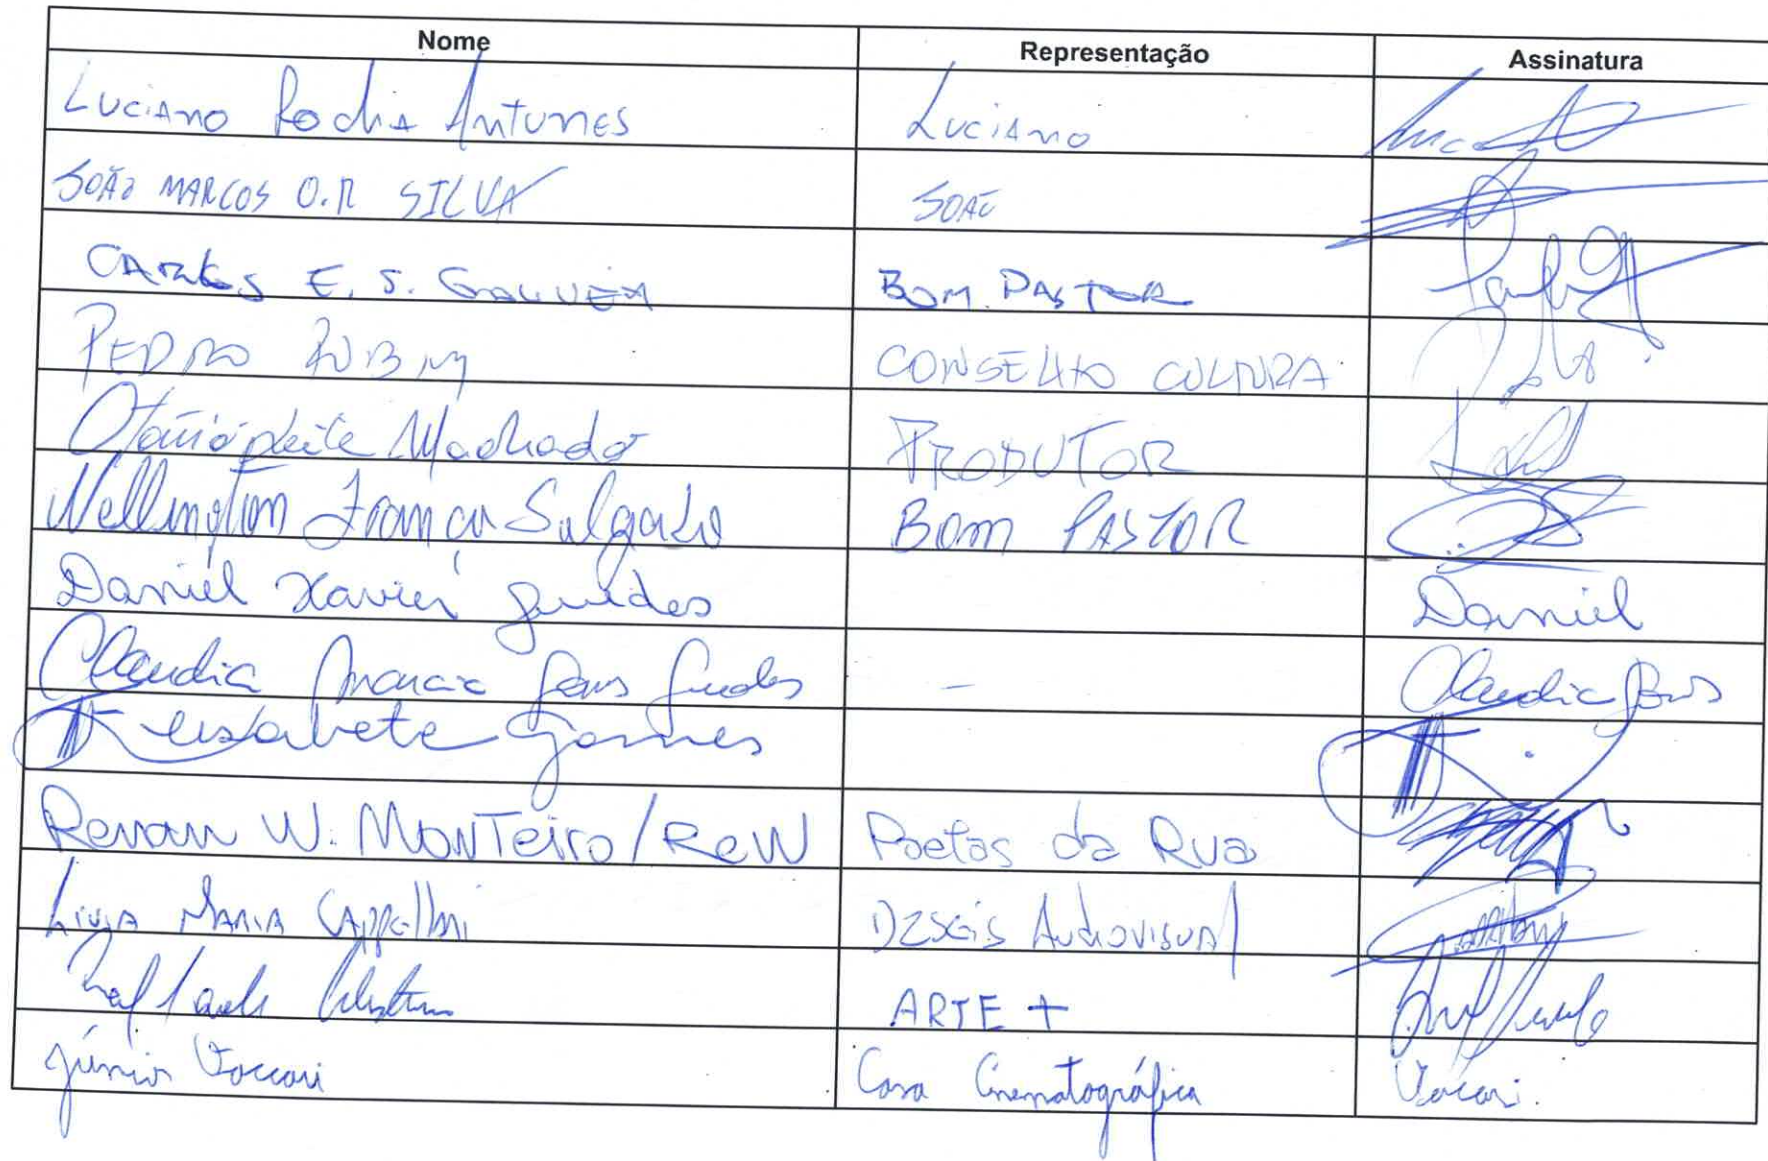 Nome Representação Assinatura
Luciano Rocha Antunes Luciano
JOÃO MARCOS O.R SILVA JOÃO
CARLOS E. S. GOUVEA BOM PASTOR
PEDRO RUBIM CONSELHO CULTURA
Otávio Leite Machado PRODUTOR
Wellington França Salgado BOM PASTOR
Daniel Xavier Guedes Daniel
Claudia Marcia Guedes - Claudia
Gomes
Renan W. MONTeiro / ReW Poetas da Rua
Livia MARIA CAPPellari DZSEIS AUDIOVISUAl
ARTE +
Júnior Vaccari Casa Cinematográfica Vaccari.